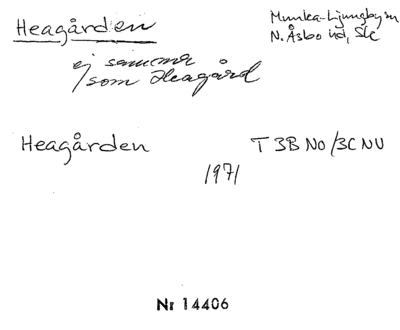 Heagården
Munka-Ljungby sn
N. Åsbo hd, Sk
ej samma
som Heagård
Heagården T 3B NO/3C NV
1971
Nr 14406